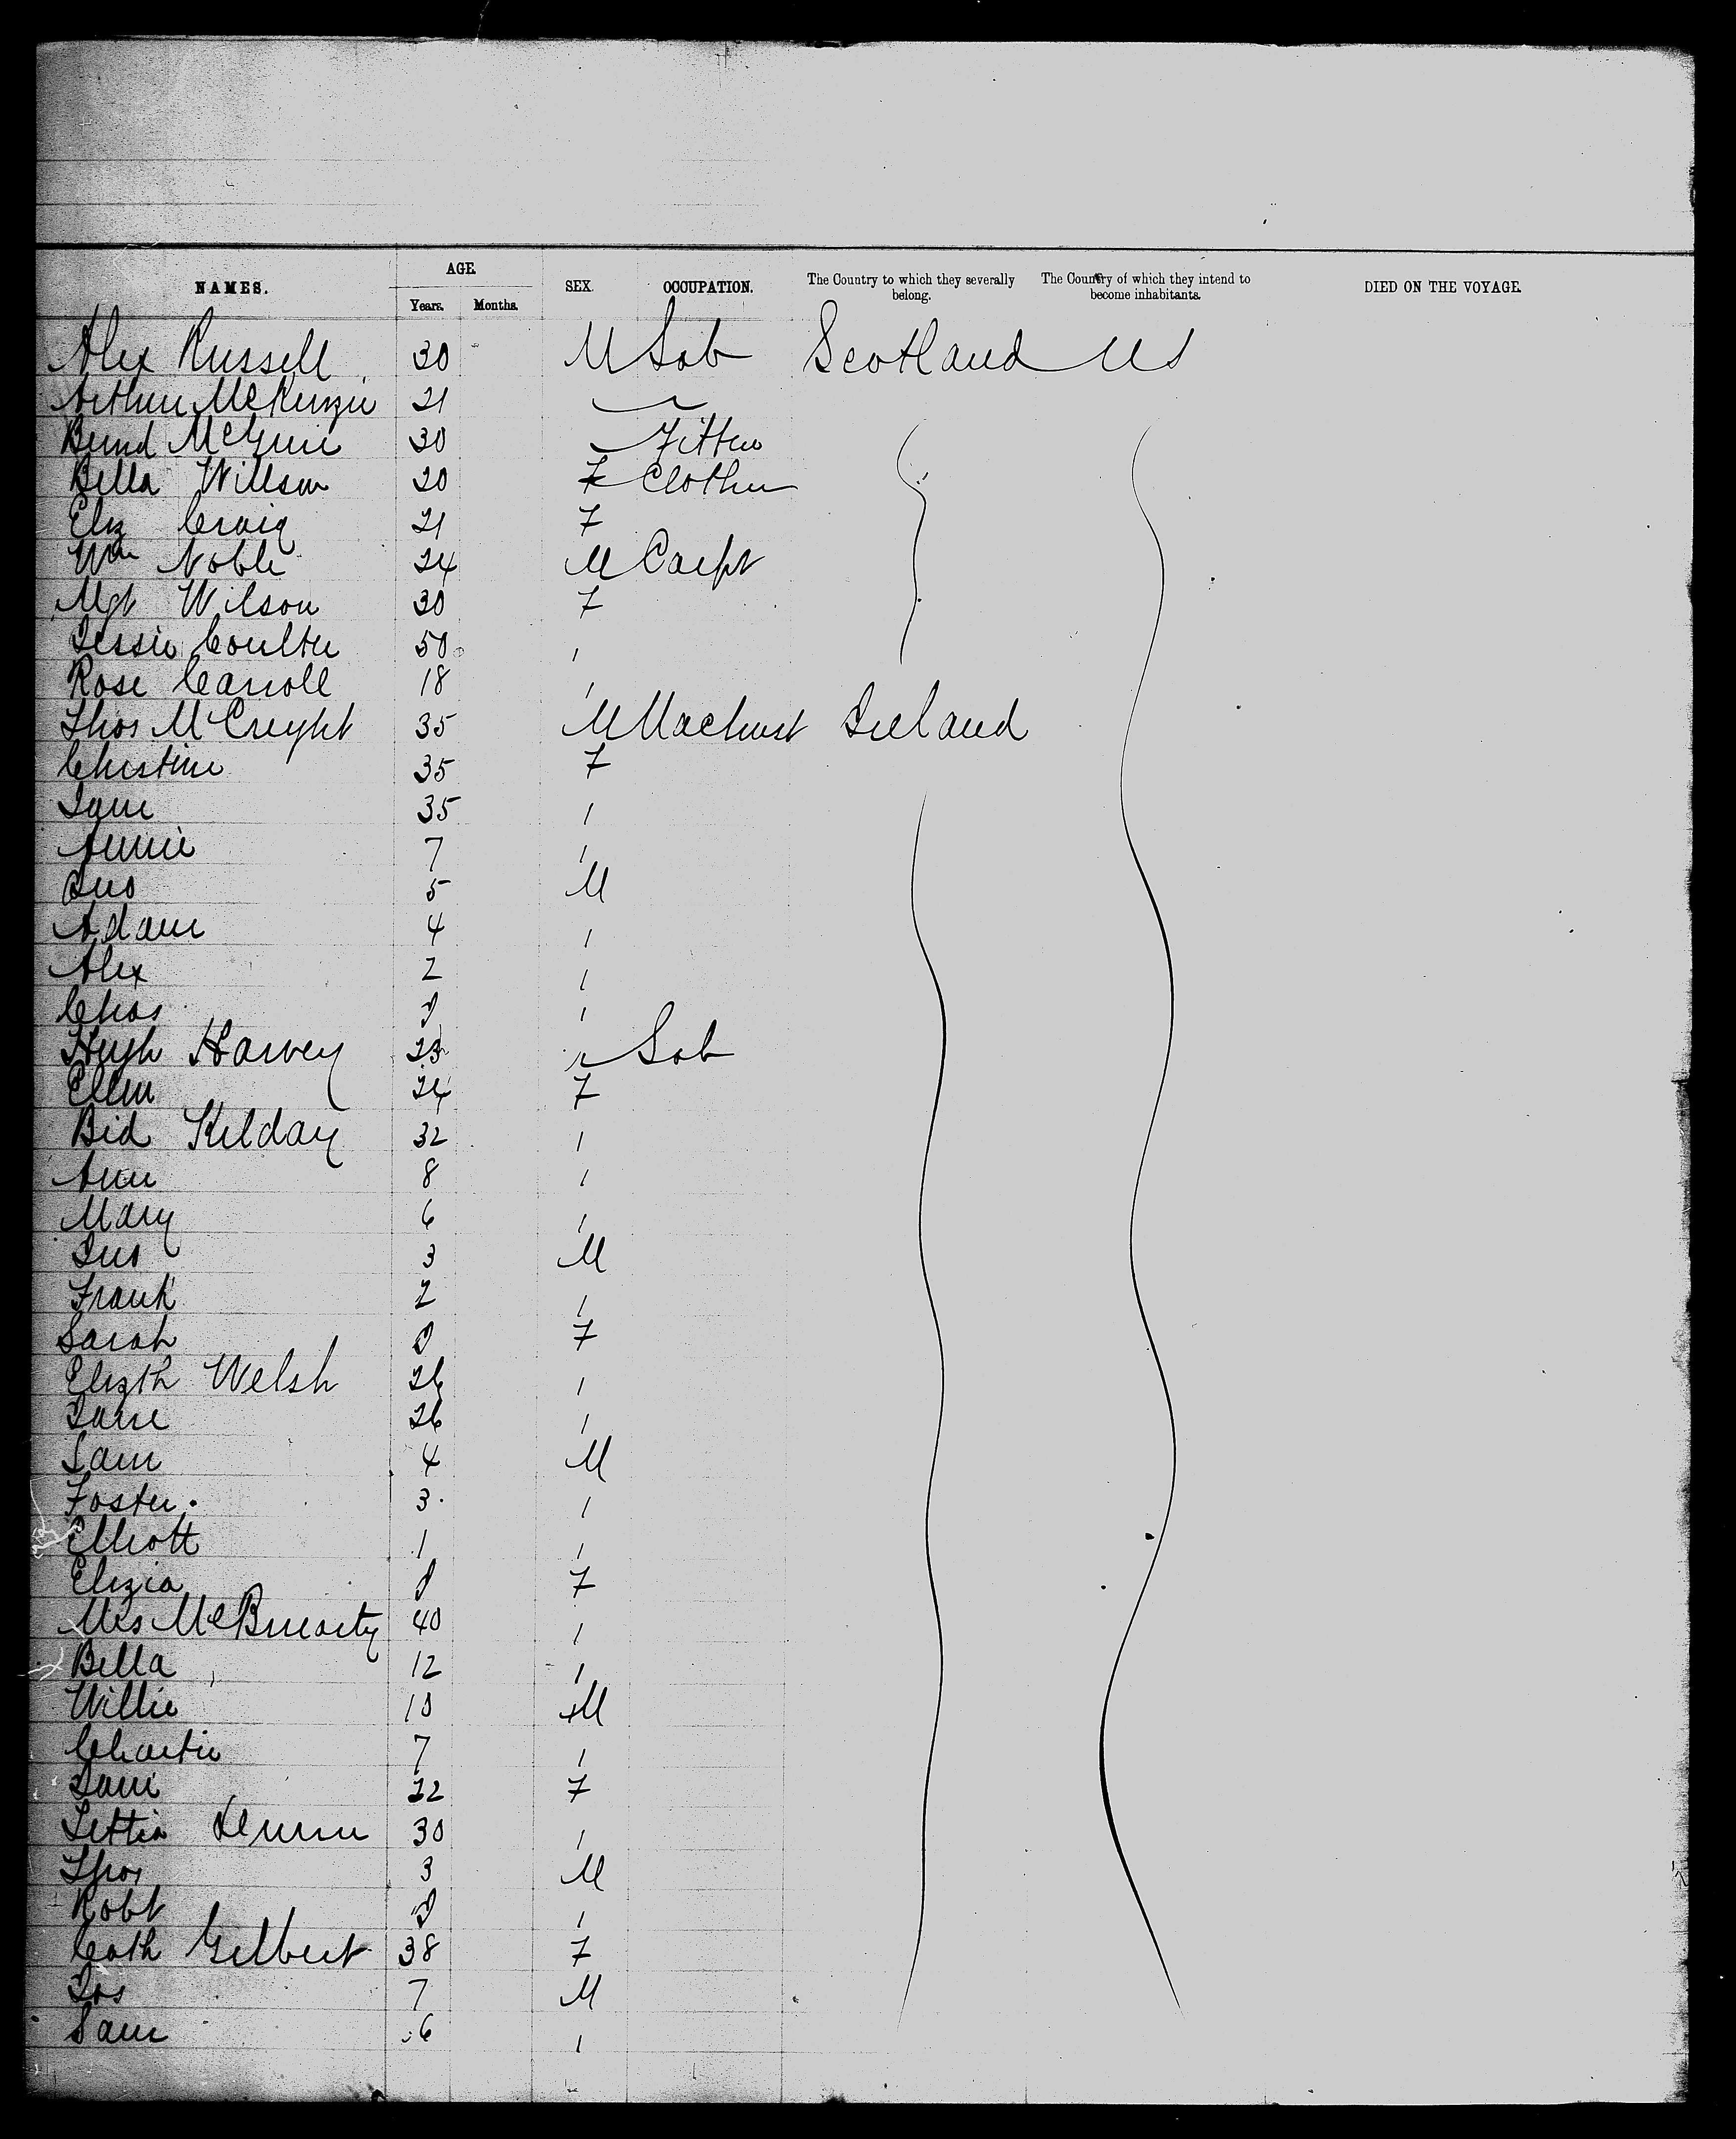 NAMES. AGE. SEX. OCCUPATION. The Country to which they severally belong. The Country of which they intend to become inhabitants. DIED ON THE VOYAGE.
Years. Months.
Alex Russell 30 M Lab Scotland US
Arthur McKenzie 21
Bernd McGuire 30 Fitter
Bella Willson 20 F Clother
Eliz Craig 21 F
Wm Noble 24 M Carpt
Mgt Wilson 30 F
Jessie Coulter 50 1
Rose Carroll 18 1
Thos McCreght 35 M Machinst Ireland
Christine 35 F
Jane 35 1
Annie 7 1
Jno 5 M
Adam 4 1
Alex 2 1
Chas 1
Hugh Harvey 23 Lab
Ellen 24 F
Bid Kilday 32 1
Ann 8 1
Mary 6 1
Jno 3 M
Frank 2 1
Sarah F
Elizth Welsh 26 1
Jane 26 1
Sam 4 M
Foster. 3 1
Elliott 1 1
Elizia F
Mrs McBrearty 40 1
Bella 12 1
Willie 10 M
Charlie 7 1
Jane 22 F
Lettia 30 1
Thos 3 M
Robt 1
Cath Gilbert 38 F
Jos 7 M
Sam 6 1